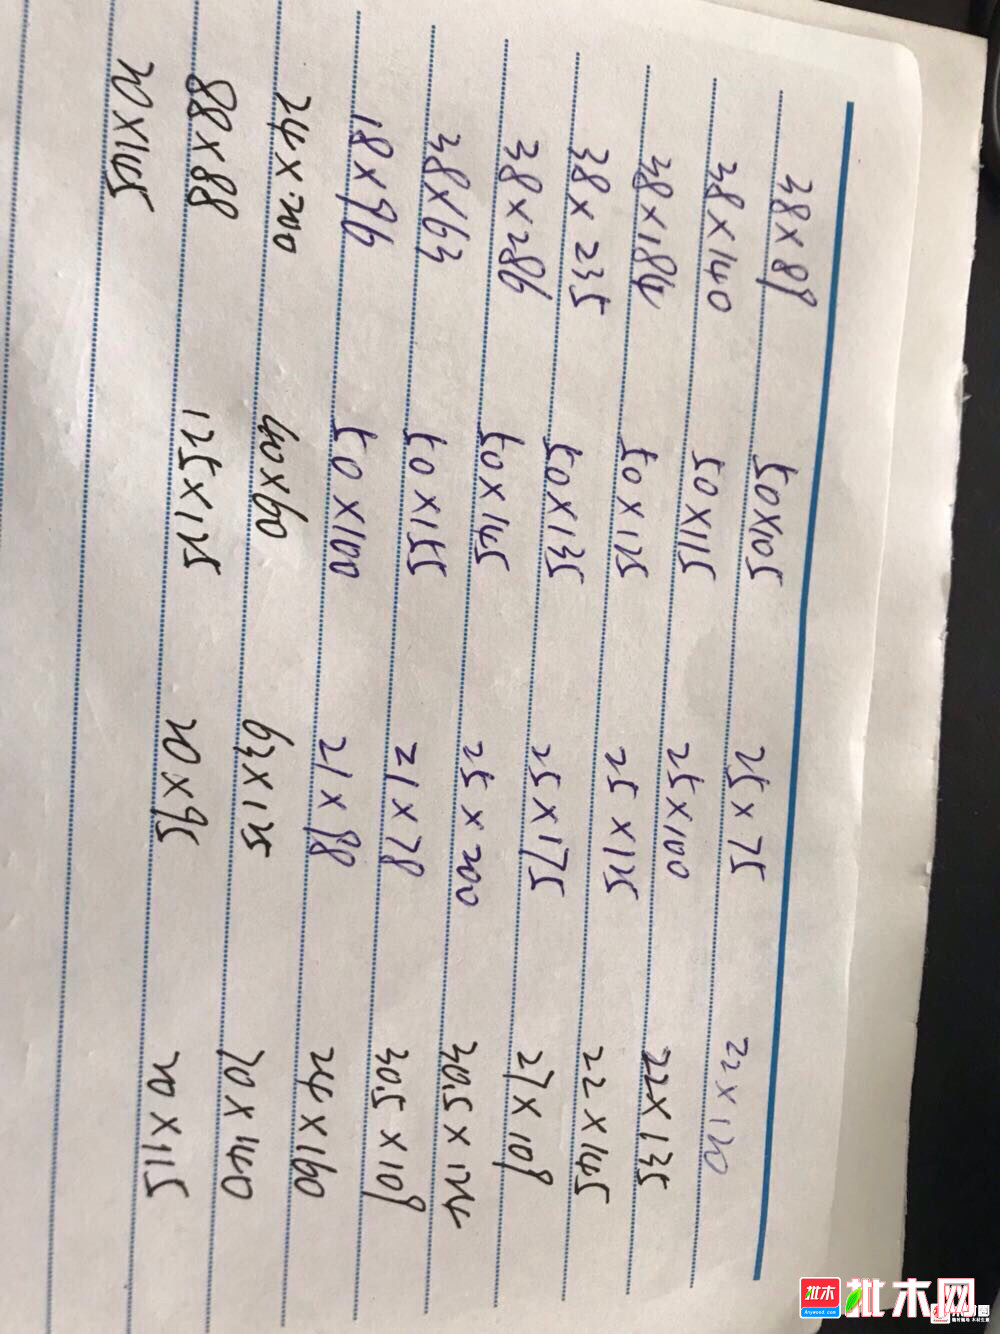 38×89 50×105 25×75 22×120
38×140 50×115 25×100 22×135
38×184 50×125 25×125 22×145
38×235 50×135 25×175 27×109
38×286 50×145 25×200 30.5×124
38×63 50×155 21×78 30.5×109
18×96 50×100 21×88 24×160
24×200 40×60 63×125 20×140
88×88 125×125 20×95 20×115
20×145
批木 批木网
Anywood.com